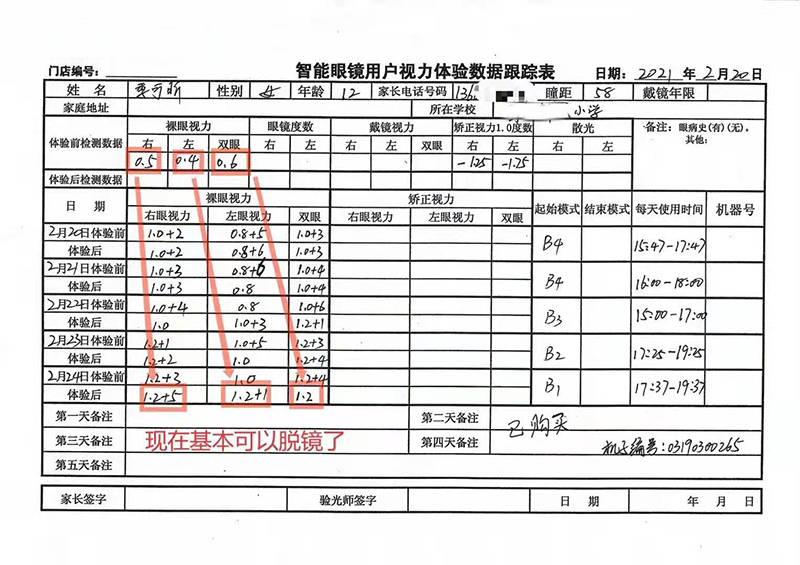 智能眼镜用户视力体验数据跟踪表
门店编号： 日期：2021年2月20日
姓名 性别 女 年龄 12 家长电话号码 136 瞳距 58 戴镜年限
家庭地址 所在学校 小学
体验前检测数据 裸眼视力 眼镜度数 戴镜视力 矫正视力1.0度数 散光 备注：眼病史(有)(无)。
右 左 双眼 右 左 右 左 双眼 右 左 右 左 其他:
0.5 0.4 0.6 -125 -1.25
体验后检测数据
日期 裸眼视力 矫正视力 起始模式 结束模式 每天使用时间 机器号
右眼视力 左眼视力 双眼 右眼视力 左眼视力 双眼
2月20日体验前 1.0+2 0.8+5 1.0+3 B4 15:47-17:47
体验后 1.0+2 0.8+6 1.0+3
2月21日体验前 1.0+3 0.8+6 1.0+4 B4 16:00-18:00
体验后 1.0+3 0.8 1.0+4
2月22日体验前 1.0+4 0.8 1.0+6 B3 15:00-17:00
体验后 1.0 1.0+3 1.2+1
2月23日体验前 1.2+1 1.0+5 1.2+3 B2 17:25-19:25
体验后 1.2+2 1.0 1.2+4
2月24日体验前 1.2+3 1.0 1.2+4 B1 17:37-19:37
体验后 1.2+5 1.2+1 1.2
第一天备注 第二天备注 已购买
第三天备注 现在基本可以脱镜了 第四天备注 机子编号:03190300265
第五天备注
家长签字 验光师签字 日期 年 月 日